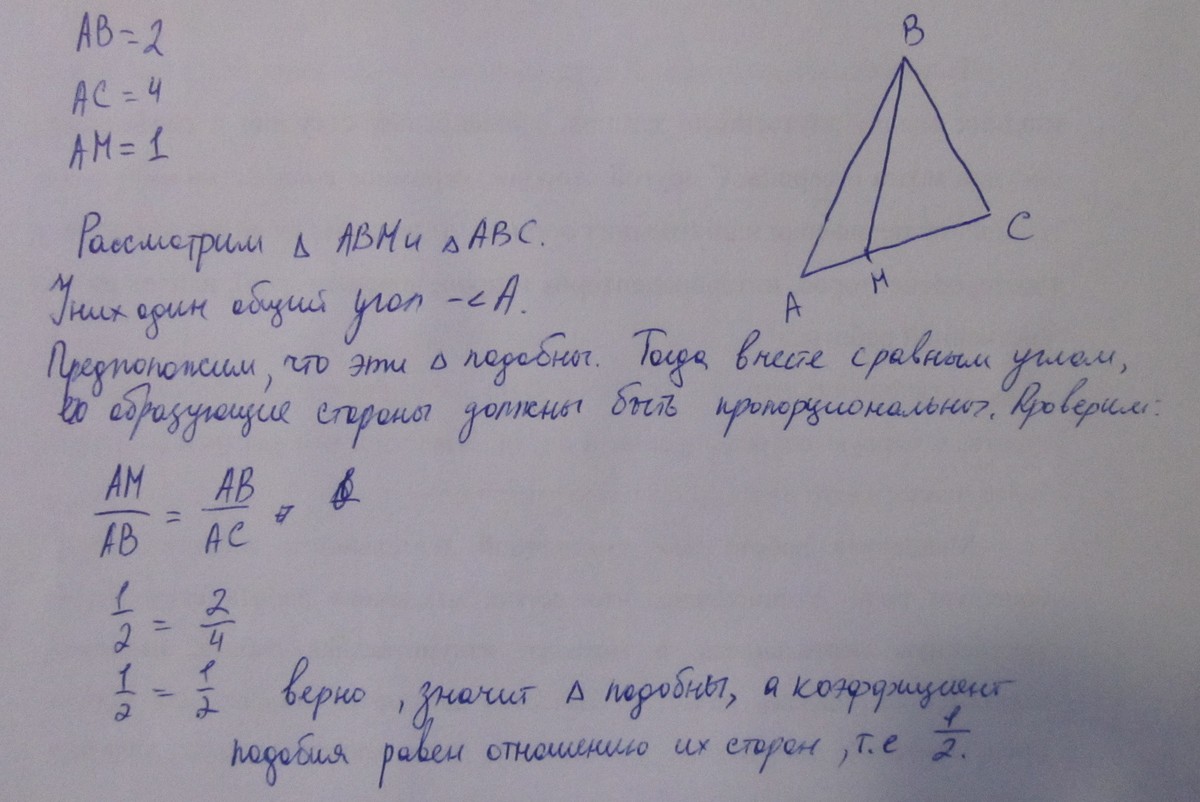 AB = 2
AC = 4
AM = 1
B
C
M
A
Рассмотрим Δ ABM и Δ ABC.
У них один общий угол - ∠A.
Предположим, что эти Δ подобны. Тогда вместе с равным углом,
образующие стороны должны быть пропорциональны. Проверим:
AM/AB = AB/AC
1/2 = 2/4
1/2 = 1/2 верно, значит Δ подобны, а коэффициент
подобия равен отношению их сторон, т.е 1/2.